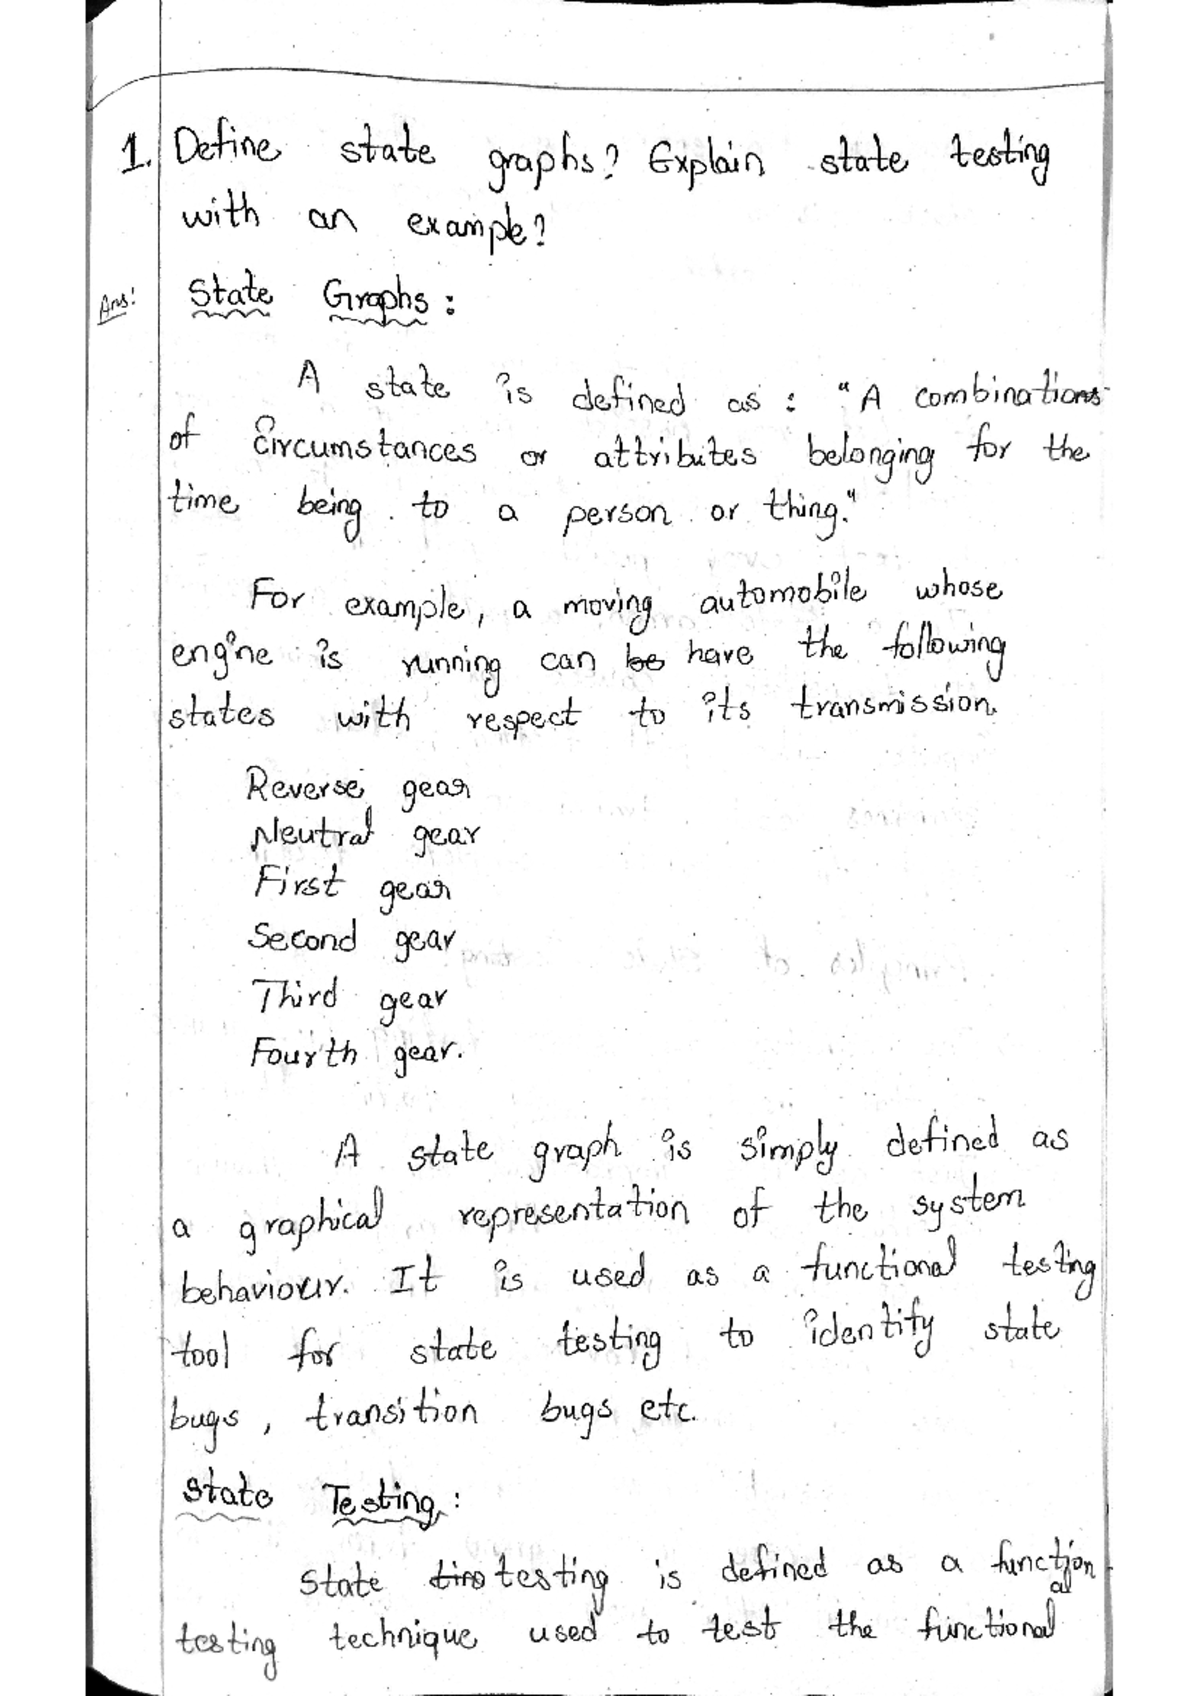 1. Define state graphs? Explain state testing
with an example?
Ans: State Graphs:
A state is defined as: "A combinations
of Circumstances or attributes belonging for the
time being to a person or thing."
For example, a moving automobile whose
engine is running can be have the following
states with respect to its transmission.
Reverse gear
Neutral gear
First gear
Second gear
Third gear
Fourth gear.
A state graph is simply defined as
a graphical representation of the system
behaviour. It is used as a functional testing
tool for state testing to identify state
bugs, transition bugs etc.
State Testing:
State testing is defined as a functional
testing technique used to test the functional